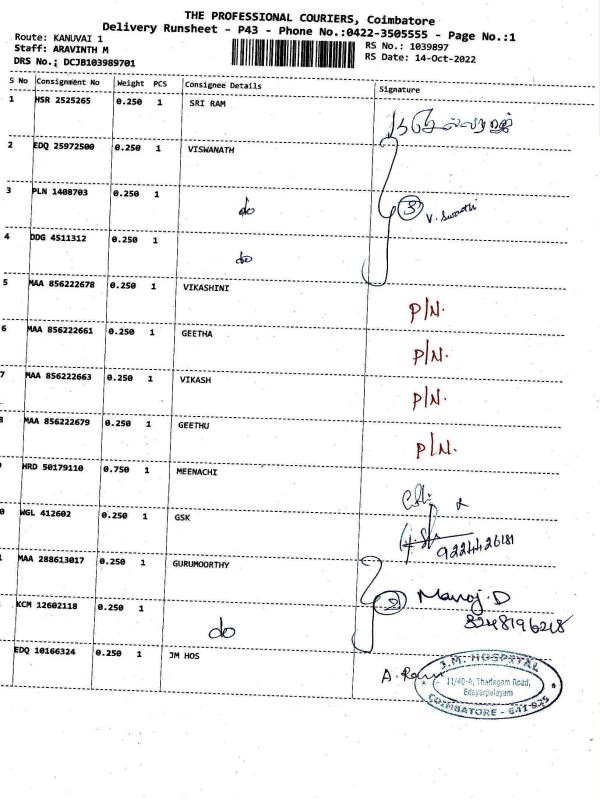 THE PROFESSIONAL COURIERS, Coimbatore
Delivery Runsheet - P43 - Phone No.:0422-3505555 - Page No.:1
Route: KANUVAI 1
Staff: ARAVINTH M
DRS No.: DCJB103989701
RS No.: 1039897
RS Date: 14-Oct-2022
S No Consignment No Weight PCS Consignee Details Signature
1 HSR 2525265 0.250 1 SRI RAM
2 EDQ 25972500 0.250 1 VISWANATH
3 PLN 1408703 0.250 1 do 3 V. Swathi
4 DDG 4511312 0.250 1 do
5 MAA 856222678 0.250 1 VIKASHINI P/N.
6 MAA 856222661 0.250 1 GEETHA P/N.
7 MAA 856222663 0.250 1 VIKASH P/N.
MAA 856222679 0.250 1 GEETHU P/N.
HRD 50179110 0.750 1 MEENACHI
WGL 412602 0.250 1 GSK
9224426181
MAA 288613017 0.250 1 GURUMOORTHY
2 Manoj.D
KCM 12602118 0.250 1 do 8248196218
EDQ 10166324 0.250 1 JM HOS
J.M. HOSPITAL
11/40-A, Thadagam Road,
Edayarpalayam
COIMBATORE - 641 025